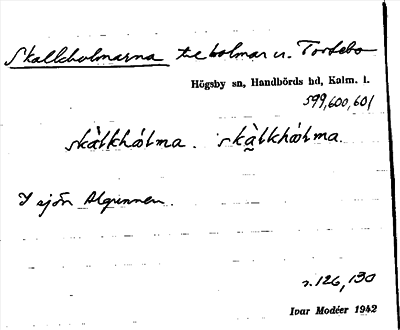 Skallholmarna tre holmar u. Tortebo
Högsby sn, Handbörds hd, Kalm. l.
599,600,601
skàlkhólma. skàlkhólma.
I sjön Algunnen.
s. 126, 130
Ivar Modéer 1942